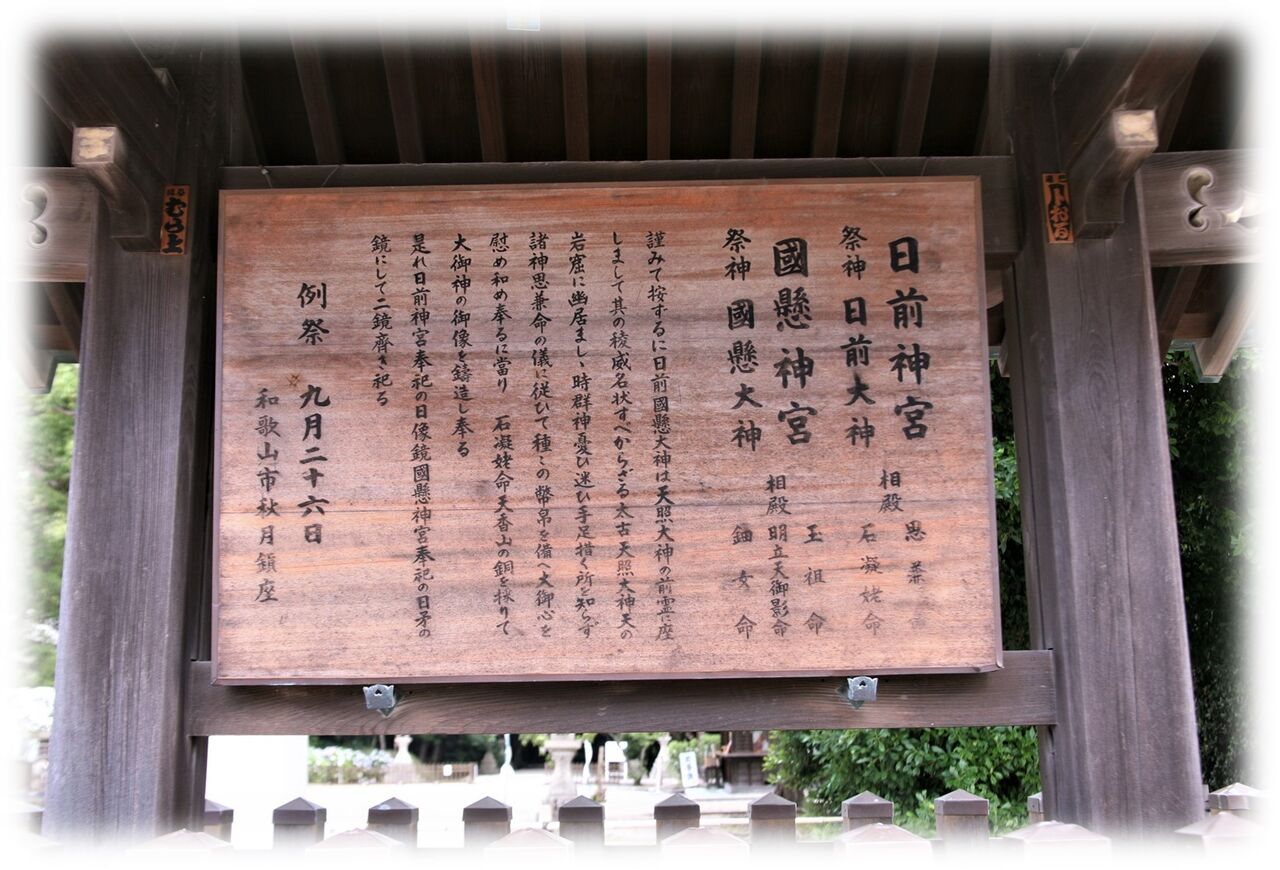 日前神宮
祭神 日前大神 相殿 思兼命
石凝姥命
國懸神宮
祭神 國懸大神 相殿 玉祖命
明立天御影命
鈿女命
謹みて按ずるに日前國懸大神は天照大神の前霊に座
しまして其の稜威名状すべからざる太古天照大神天の
岩窟に幽居ましゝ時群神憂ひ迷ひ手足措く所を知らず
諸神思兼命の儀に従ひて種々の幣帛を備へ大御心を
慰め和め奉るに當り 石凝姥命天香山の銅を採りて
大御神の御像を鋳造し奉る
是れ日前神宮奉祀の日像鏡國懸神宮奉祀の日矛の
鏡にして二鏡齊き祀る
例祭 九月二十六日
和歌山市秋月鎮座